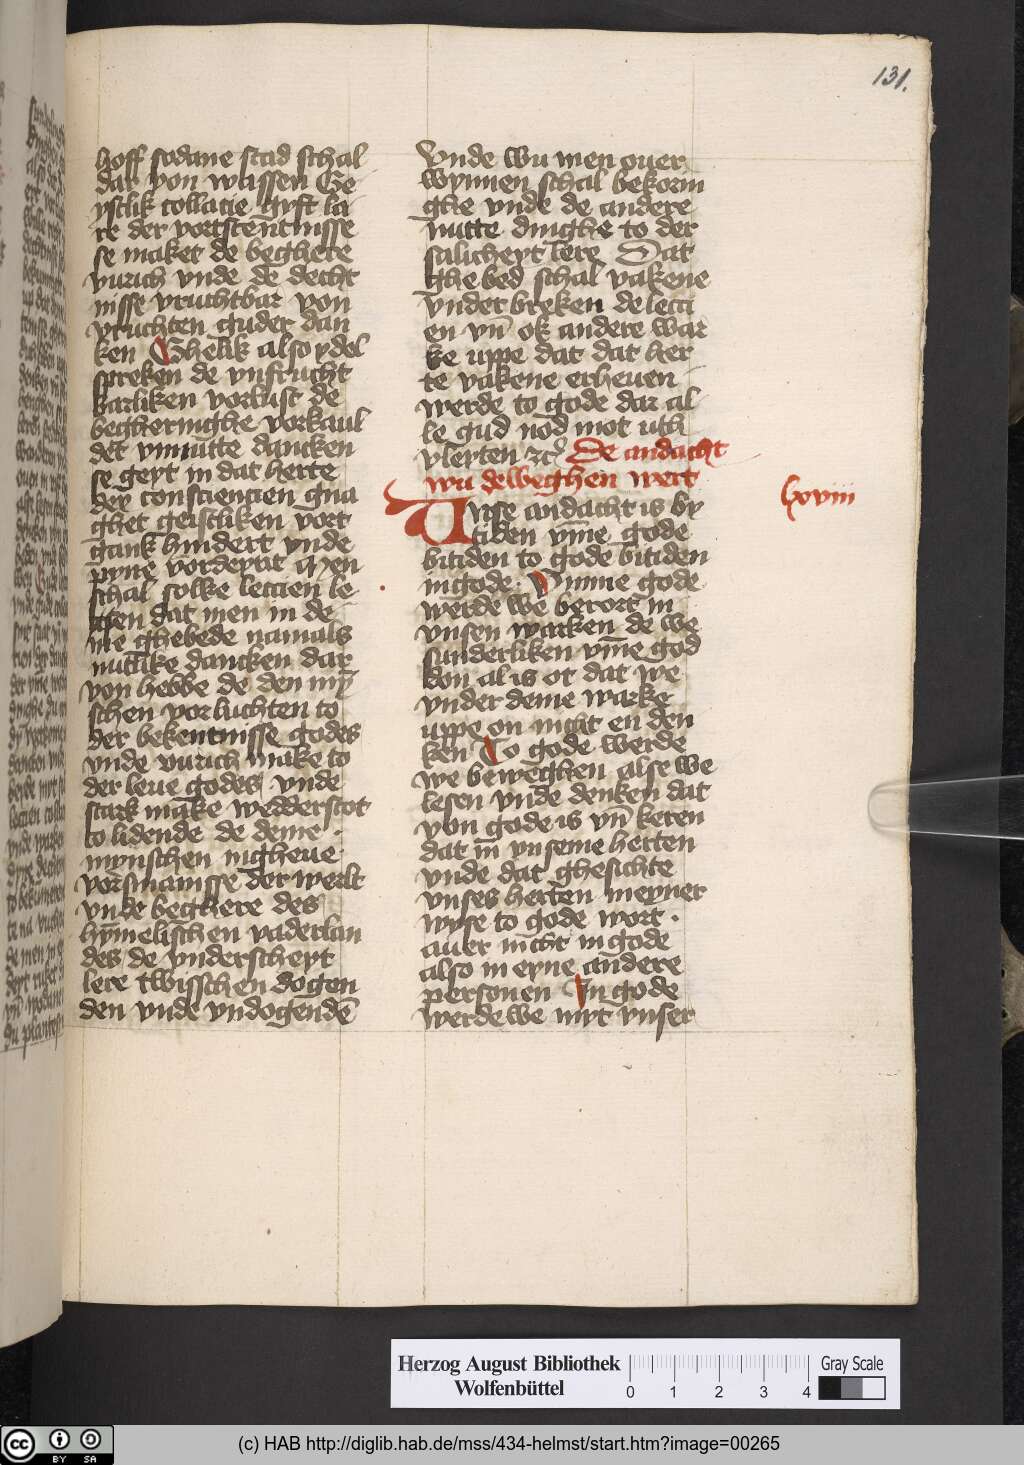 131.
hoff sodane stad schal
dar von wassen Ge
ystlik collacie gyft la
re der vorstentnisse
se maket de beghere
vurich vnde de decht
nisse vruchtbar von
vruchten guder dan
ken Ghelik also ydel
spreken de vnfrucht
barliken vorlust de
begheringhe vorkaul
det vnnutte dancken
se geyt in dat herte
bey consciencien gna
ghet geistliken vort
gank hindert vnde
pyne vordeyrt Men
schal solke leccien le
sen dat men in de
me ghebede namals
nutlike dancken dar
von hebbe de den my̅
schen vorluchten to
der bekentnisse godes
vnde vurich make to
der leue godes vnde
stark make wedderstot
to lidende de deme
mynschen ingheue
vorsmanisse der werlt
vnde beghere des
hy̅melischen vaderlan
des de vnderscheyt
lere twisschen dogen
den vnde vndogende̅
Vnde wu men ouer
wynnen schal bekorin
ghe vnde de andere
nutte dinghe to der
salicheyt lere Dat
ghe bed schal vakene
vnderbreken de lecci
en vn̅ ok andere war
ke uppe dat dat her
te vakene erheuen
werde to gode dar al
le gud nod mot uth
vleyten ⁊c̉ De andacht
wu de weghen wert
lxviii
Vnse andacht is by
tiden vm̅e gode
bitiden to gode bitiden
in gode Vmme gode
werde we berort in
vnsen warken de we
sunderliken vm̅e god
don al is ot dat we
vnder deme warke
uppe on nicht en den
ken To gode werde
we beweghen alse we
lesen vnde denken dat
von gode is vn̅ keren
dat in vnseme herten
vnde dat ghesichte
vnses herten in eyner
wyse to gode wort
auer nicht in gode
also in eyne andere
personen In gode
werde we myt vnser
Herzog August Bibliothek
Wolfenbüttel
0 1 2 3 4
Gray Scale
cc BY SA
(c) HAB http://diglib.hab.de/mss/434-helmst/start.htm?image=00265